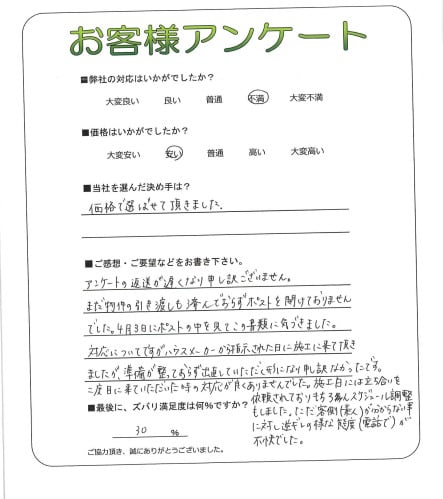 お客様アンケート
■弊社の対応はいかがでしたか?
大変良い 良い 普通 不満 大変不満
■価格はいかがでしたか?
大変安い 安い 普通 高い 大変高い
■当社を選んだ決め手は?
価格で選ばせて頂きました。
■ご感想・ご要望などをお書き下さい。
アンケートの返送が遅くなり申し訳ございません。
まだ物件の引き渡しも済んでおらずポストを開けておりません
でした。4月3日にポストの中を見てこの書類に気づきました。
対応についてですがハウスメーカーから指示された日に施工に来て頂き
ましたが、準備が整っておらず出直していただく形になり申し訳なかったです。
二度目に来ていただいた時の対応が良くありませんでした。施工日には立ち合いを
依頼されておりもちろんスケジュール調整
もしました。ただ客側(素人)が分からない事
に対し逆ギレの様な態度(電話で)が
不快でした。
■最後に、ズバリ満足度は何%ですか?
30 %
ご協力頂き、誠にありがとうございました。